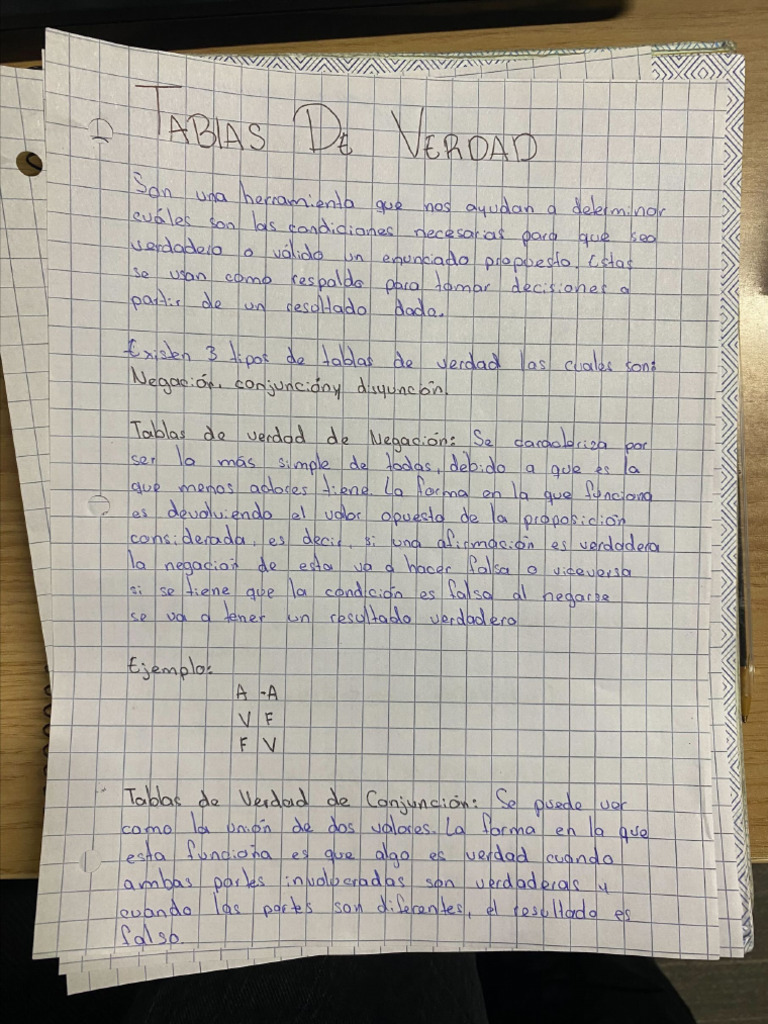 TABLAS DE VERDAD
Son una herramienta que nos ayudan a determinar
cuáles son las condiciones necesarias para que sea
verdadero o válido un enunciado propuesto. Estas
se usan como respaldo para tomar decisiones a
partir de un resultado dada.
Existen 3 tipos de tablas de verdad las cuales son:
Negación, conjunción y disyunción.
Tablas de verdad de Negación: Se caracteriza por
ser la más simple de todas, debido a que es la
que menos actores tiene. La forma en la que funciona
es devolviendo el valor opuesto de la proposición
considerada, es decir, si una afirmación es verdadera
la negación de esta va a hacer falsa o viceversa
si se tiene que la condición es falsa al negarse
se va a tener un resultado verdadero
Ejemplo:
A -A
V F
F V
Tablas de Verdad de Conjunción: Se puede ver
como la unión de dos valores. La forma en la que
esta funciona es que algo es verdad cuando
ambas partes involucradas son verdaderas y
cuando las partes son diferentes, el resultado es
falso.